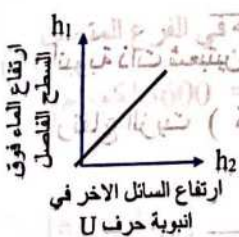 h₁
ارتفاع الماء فوق
السطح الفاصل
h₂
ارتفاع السائل الاخر في
انبوبة حرف U